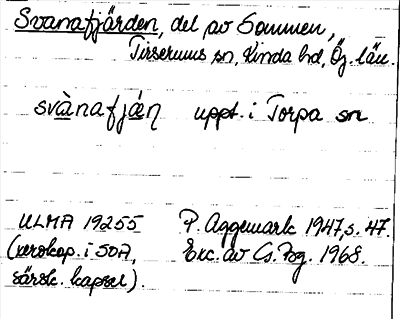 Svanafjärden, del av Sommen,
Tirserums sn, Kinda hd, Ög. län.
svànafjä́ṇ uppt. i Torpa sn
ULMA 19255 P. Aggemark 1947, s. 47.
(xerokop. i SOA, Exc. av Cs. Bg. 1968.
särsk. kapsel).